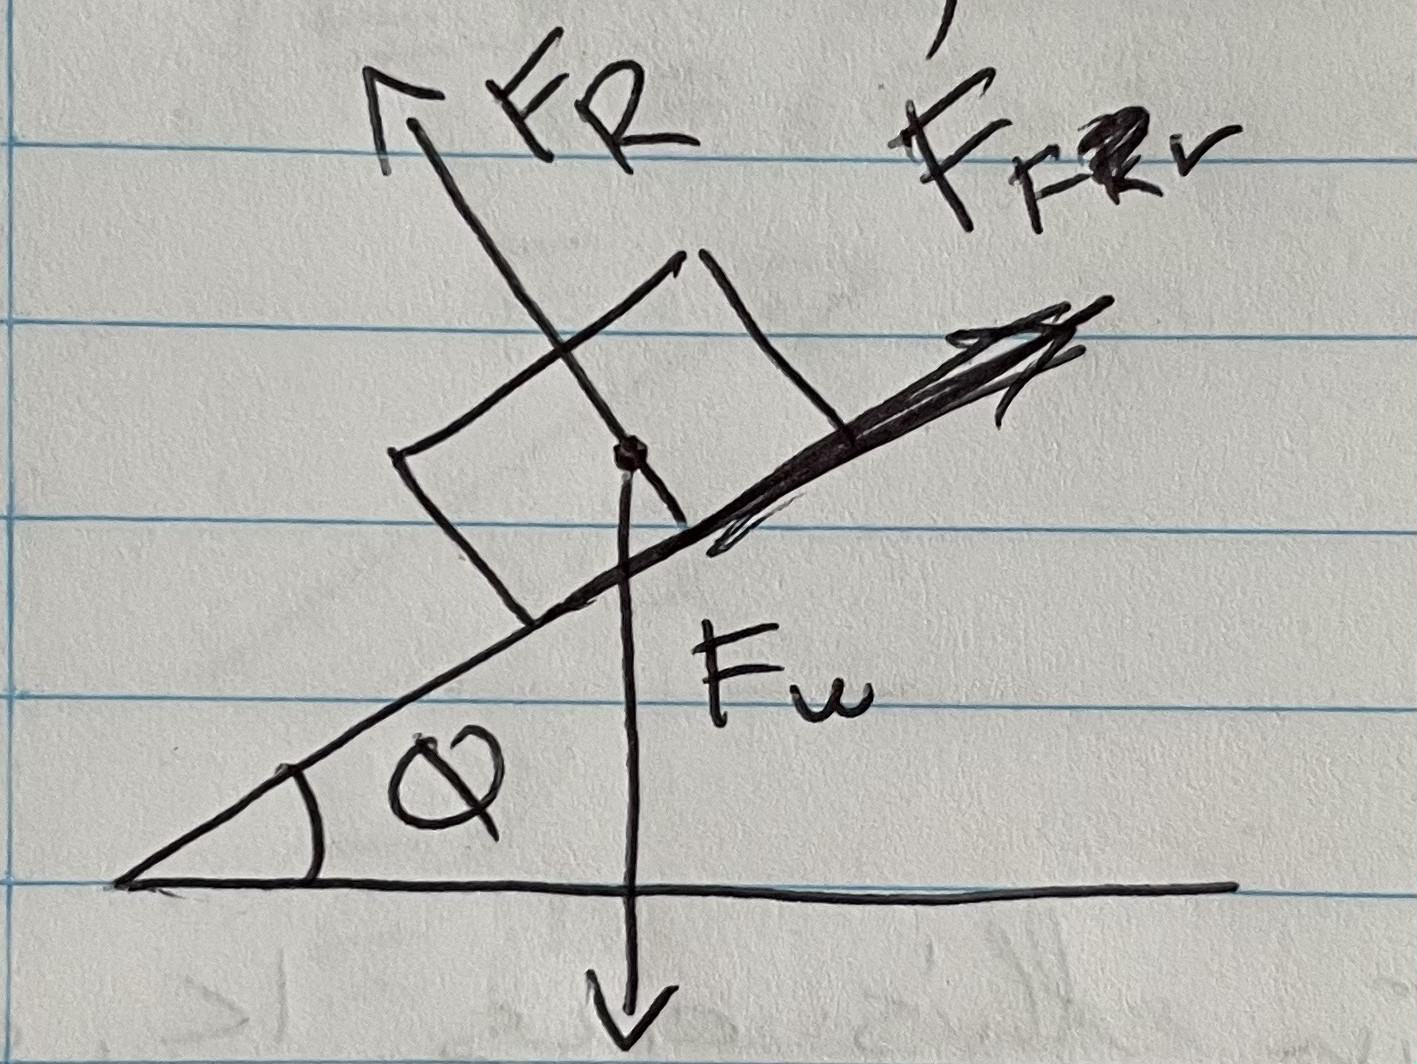 FR
FFRr
Fw
φ